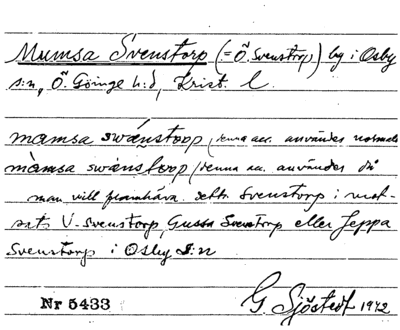 Mumsa Svenstorp (= Ö. Svenstorp) by i Osby
s:n, Ö. Göinge h:d, Krist. l.
mamsa swánstoop (denna acc. användes normalt
màmsa swænstoop (denna acc. användes då
man vill framhäva detta Svenstorp i mot-
sats V. Svenstorp, Gussa Svenstorp eller Jeppa
Svenstorp i Osby s:n
Nr 5433
G. Sjöstedt 1942